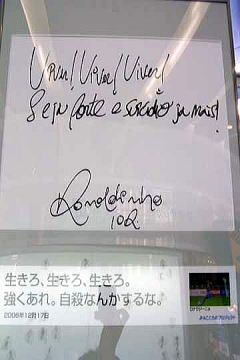 Viver! Viver! Viver!
Seja forte e suicídio jamais!
Ronaldinho
10R
生きろ、生きろ、生きろ。
強くあれ。自殺なんかするな。
2006年12月17日
ロナウジーニョ